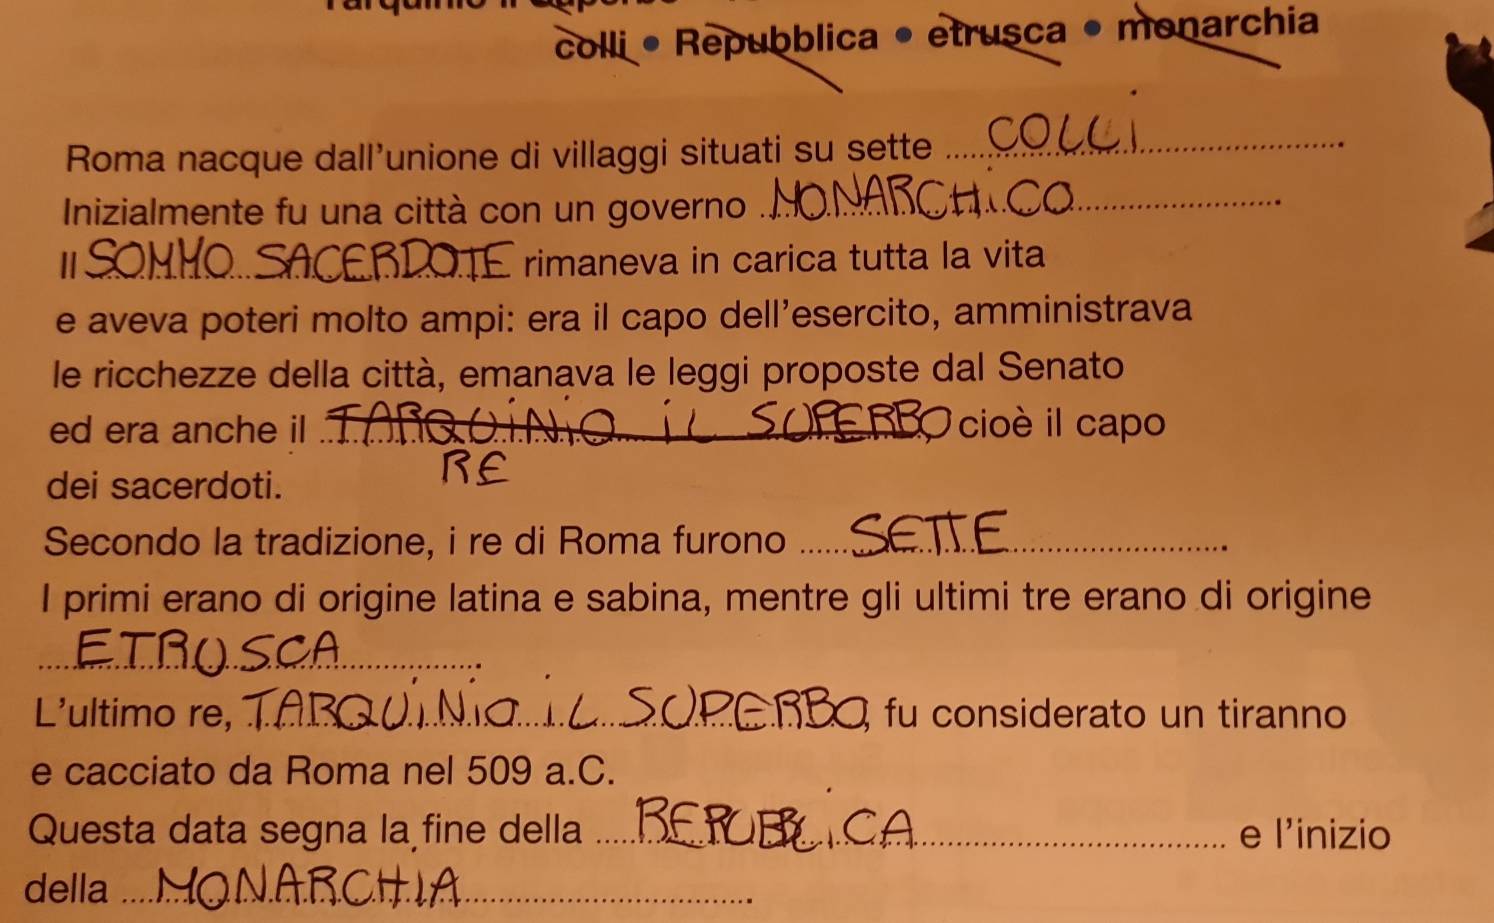 colli • Repubblica • etrusca • monarchia
Roma nacque dall'unione di villaggi situati su sette COLLI
Inizialmente fu una città con un governo MONARCHICO
Il SOMMO SACERDOTE rimaneva in carica tutta la vita
e aveva poteri molto ampi: era il capo dell'esercito, amministrava
le ricchezze della città, emanava le leggi proposte dal Senato
ed era anche il TARQUINIO IL SUPERBO cioè il capo
RE
dei sacerdoti.
Secondo la tradizione, i re di Roma furono SETTE
I primi erano di origine latina e sabina, mentre gli ultimi tre erano di origine
ETRUSCA.
L'ultimo re, TARQUINIO IL SUPERBO, fu considerato un tiranno
e cacciato da Roma nel 509 a.C.
Questa data segna la fine della REPUBBLICA e l'inizio
della MONARCHIA.